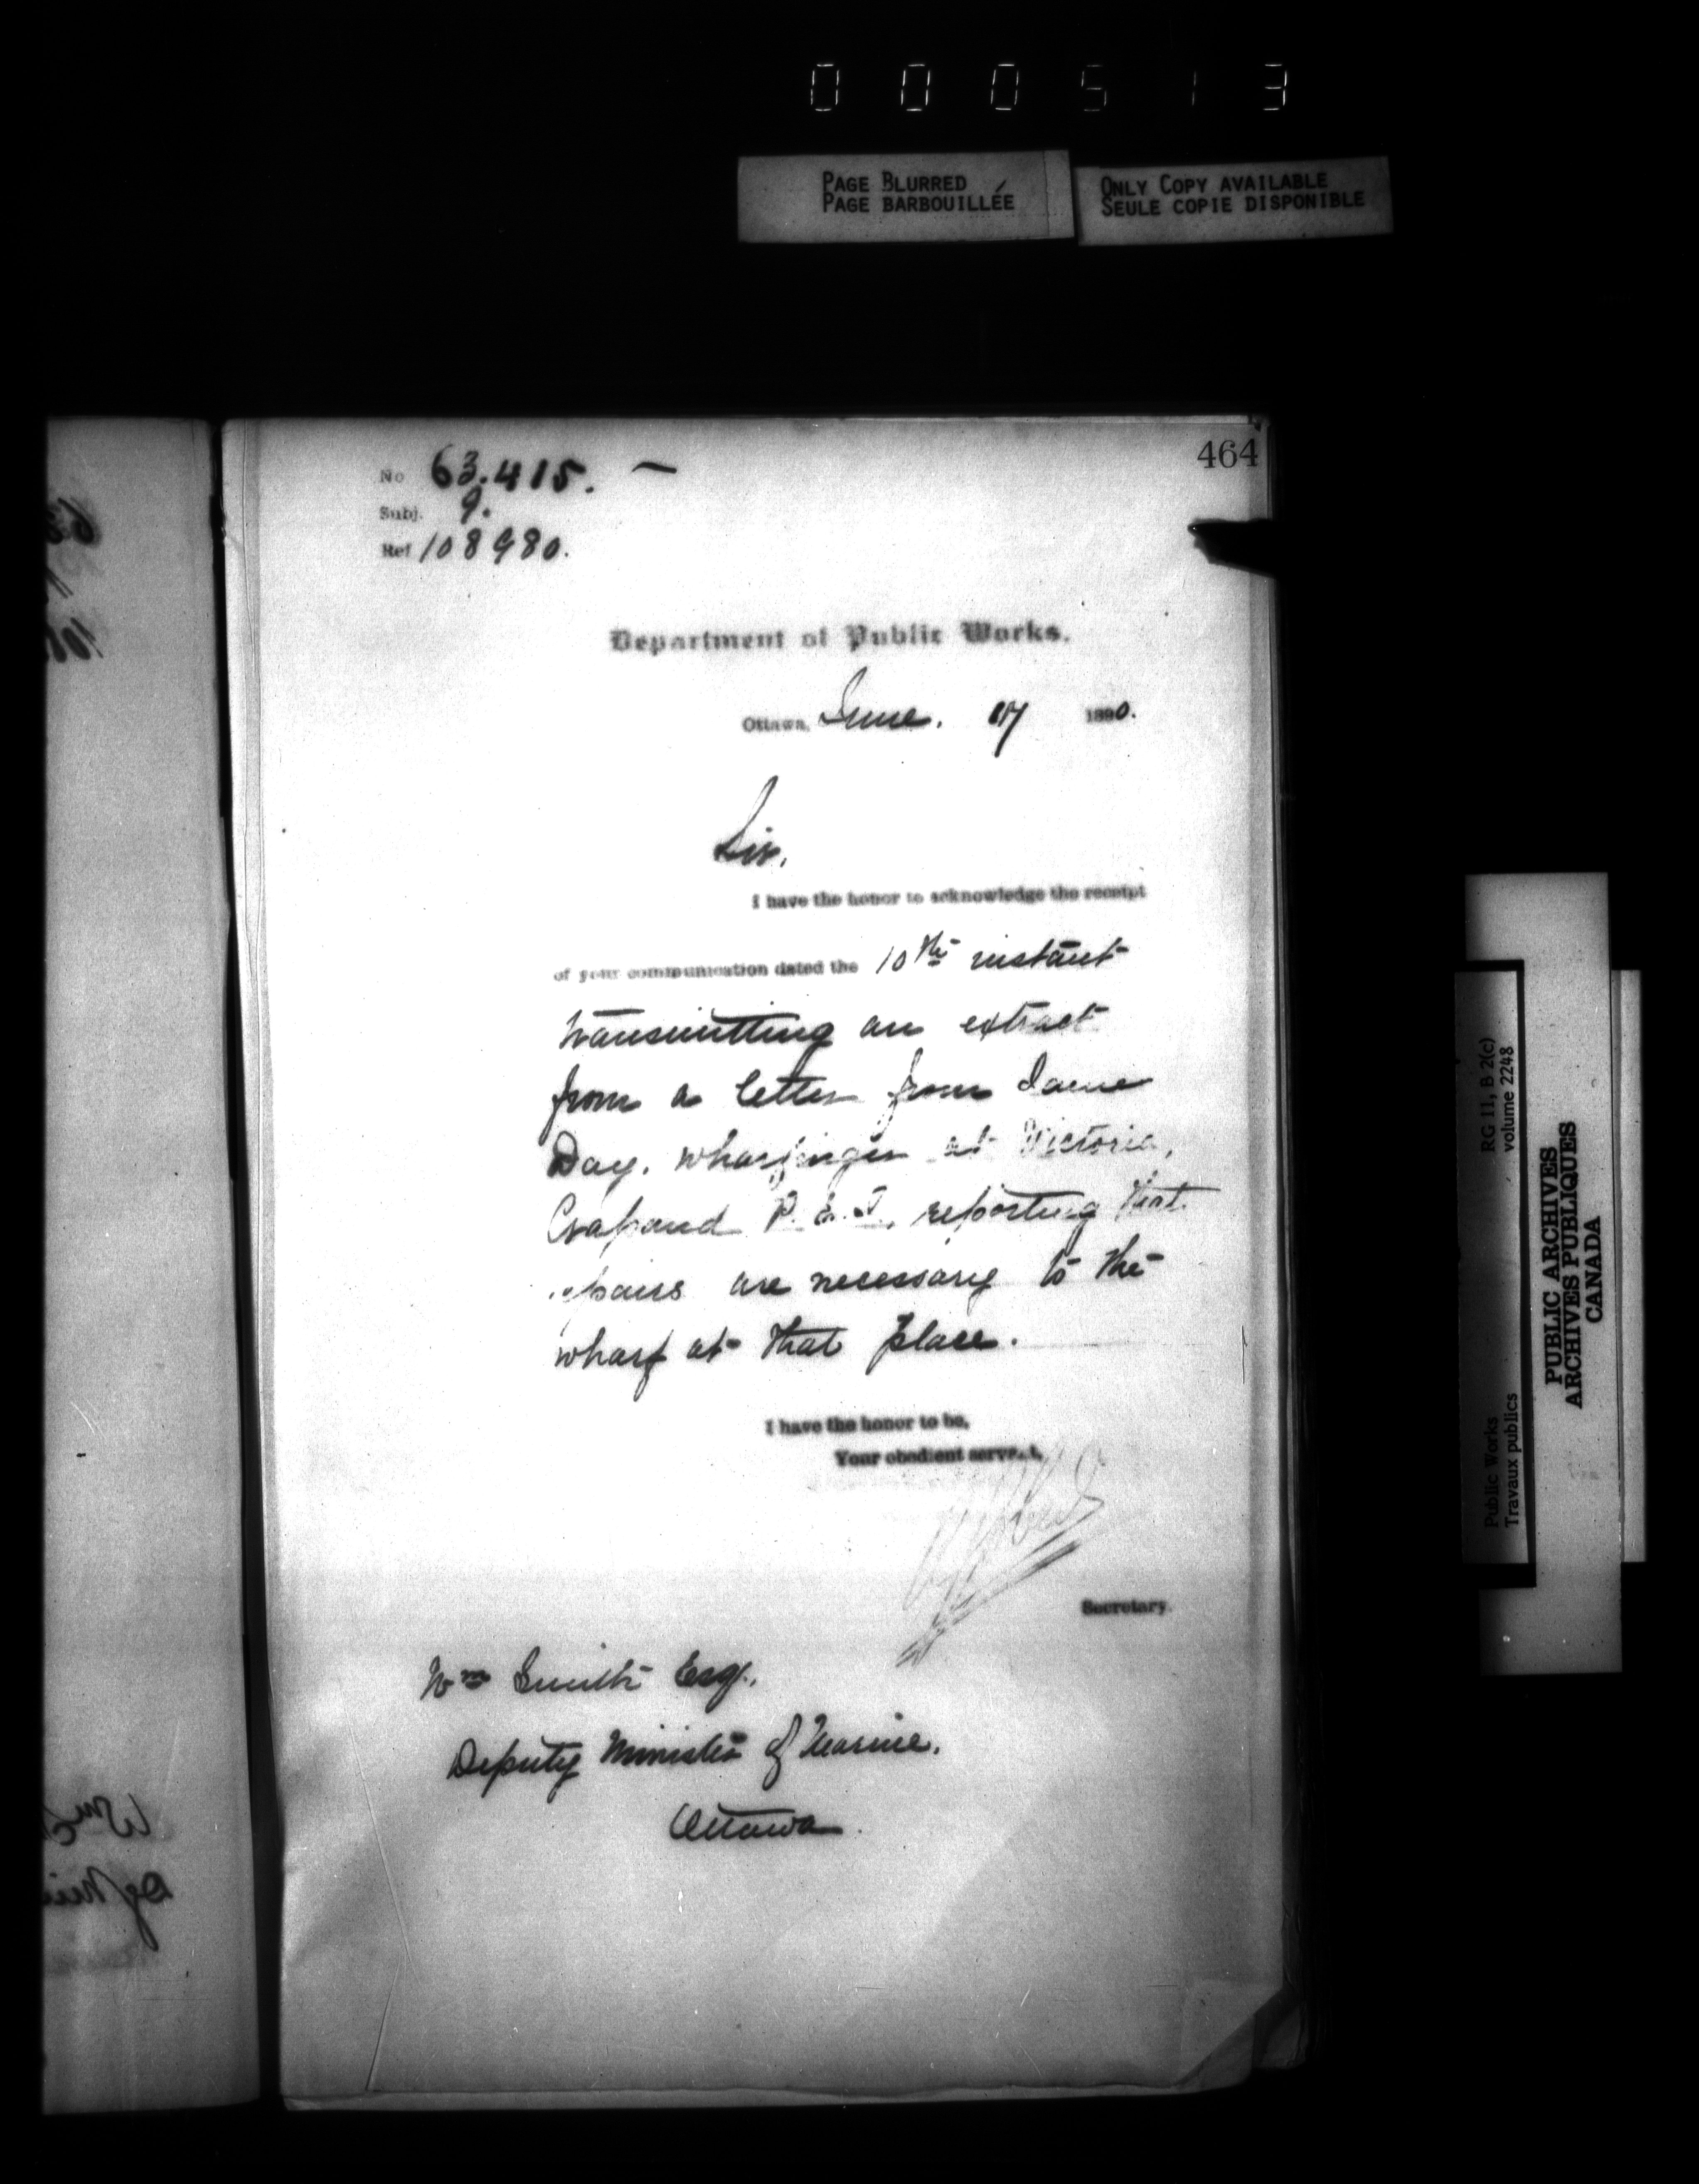 000513
PAGE BLURRED
PAGE BARBOUILLÉE
ONLY COPY AVAILABLE
SEULE COPIE DISPONIBLE
464
No 63.415.
Subj. 9.
Ref 108980.
Department of Public Works.
Ottawa, June. 17 1890.
Sir,
I have the honor to acknowledge the receipt
of your communication dated the 10th instant
transmitting an extract
from a letter from
Day, wharfinger at Victoria,
Crapaud P. E. I. reporting that
repairs are necessary to the
wharf at that place.
I have the honor to be,
Your obedient servant,
Secretary.
Wm Smith Esq.,
Deputy Minister of Marine,
Ottawa.
RG 11, B 2(c)
volume 2248
Public Works
Travaux publics
PUBLIC ARCHIVES
ARCHIVES PUBLIQUES
CANADA